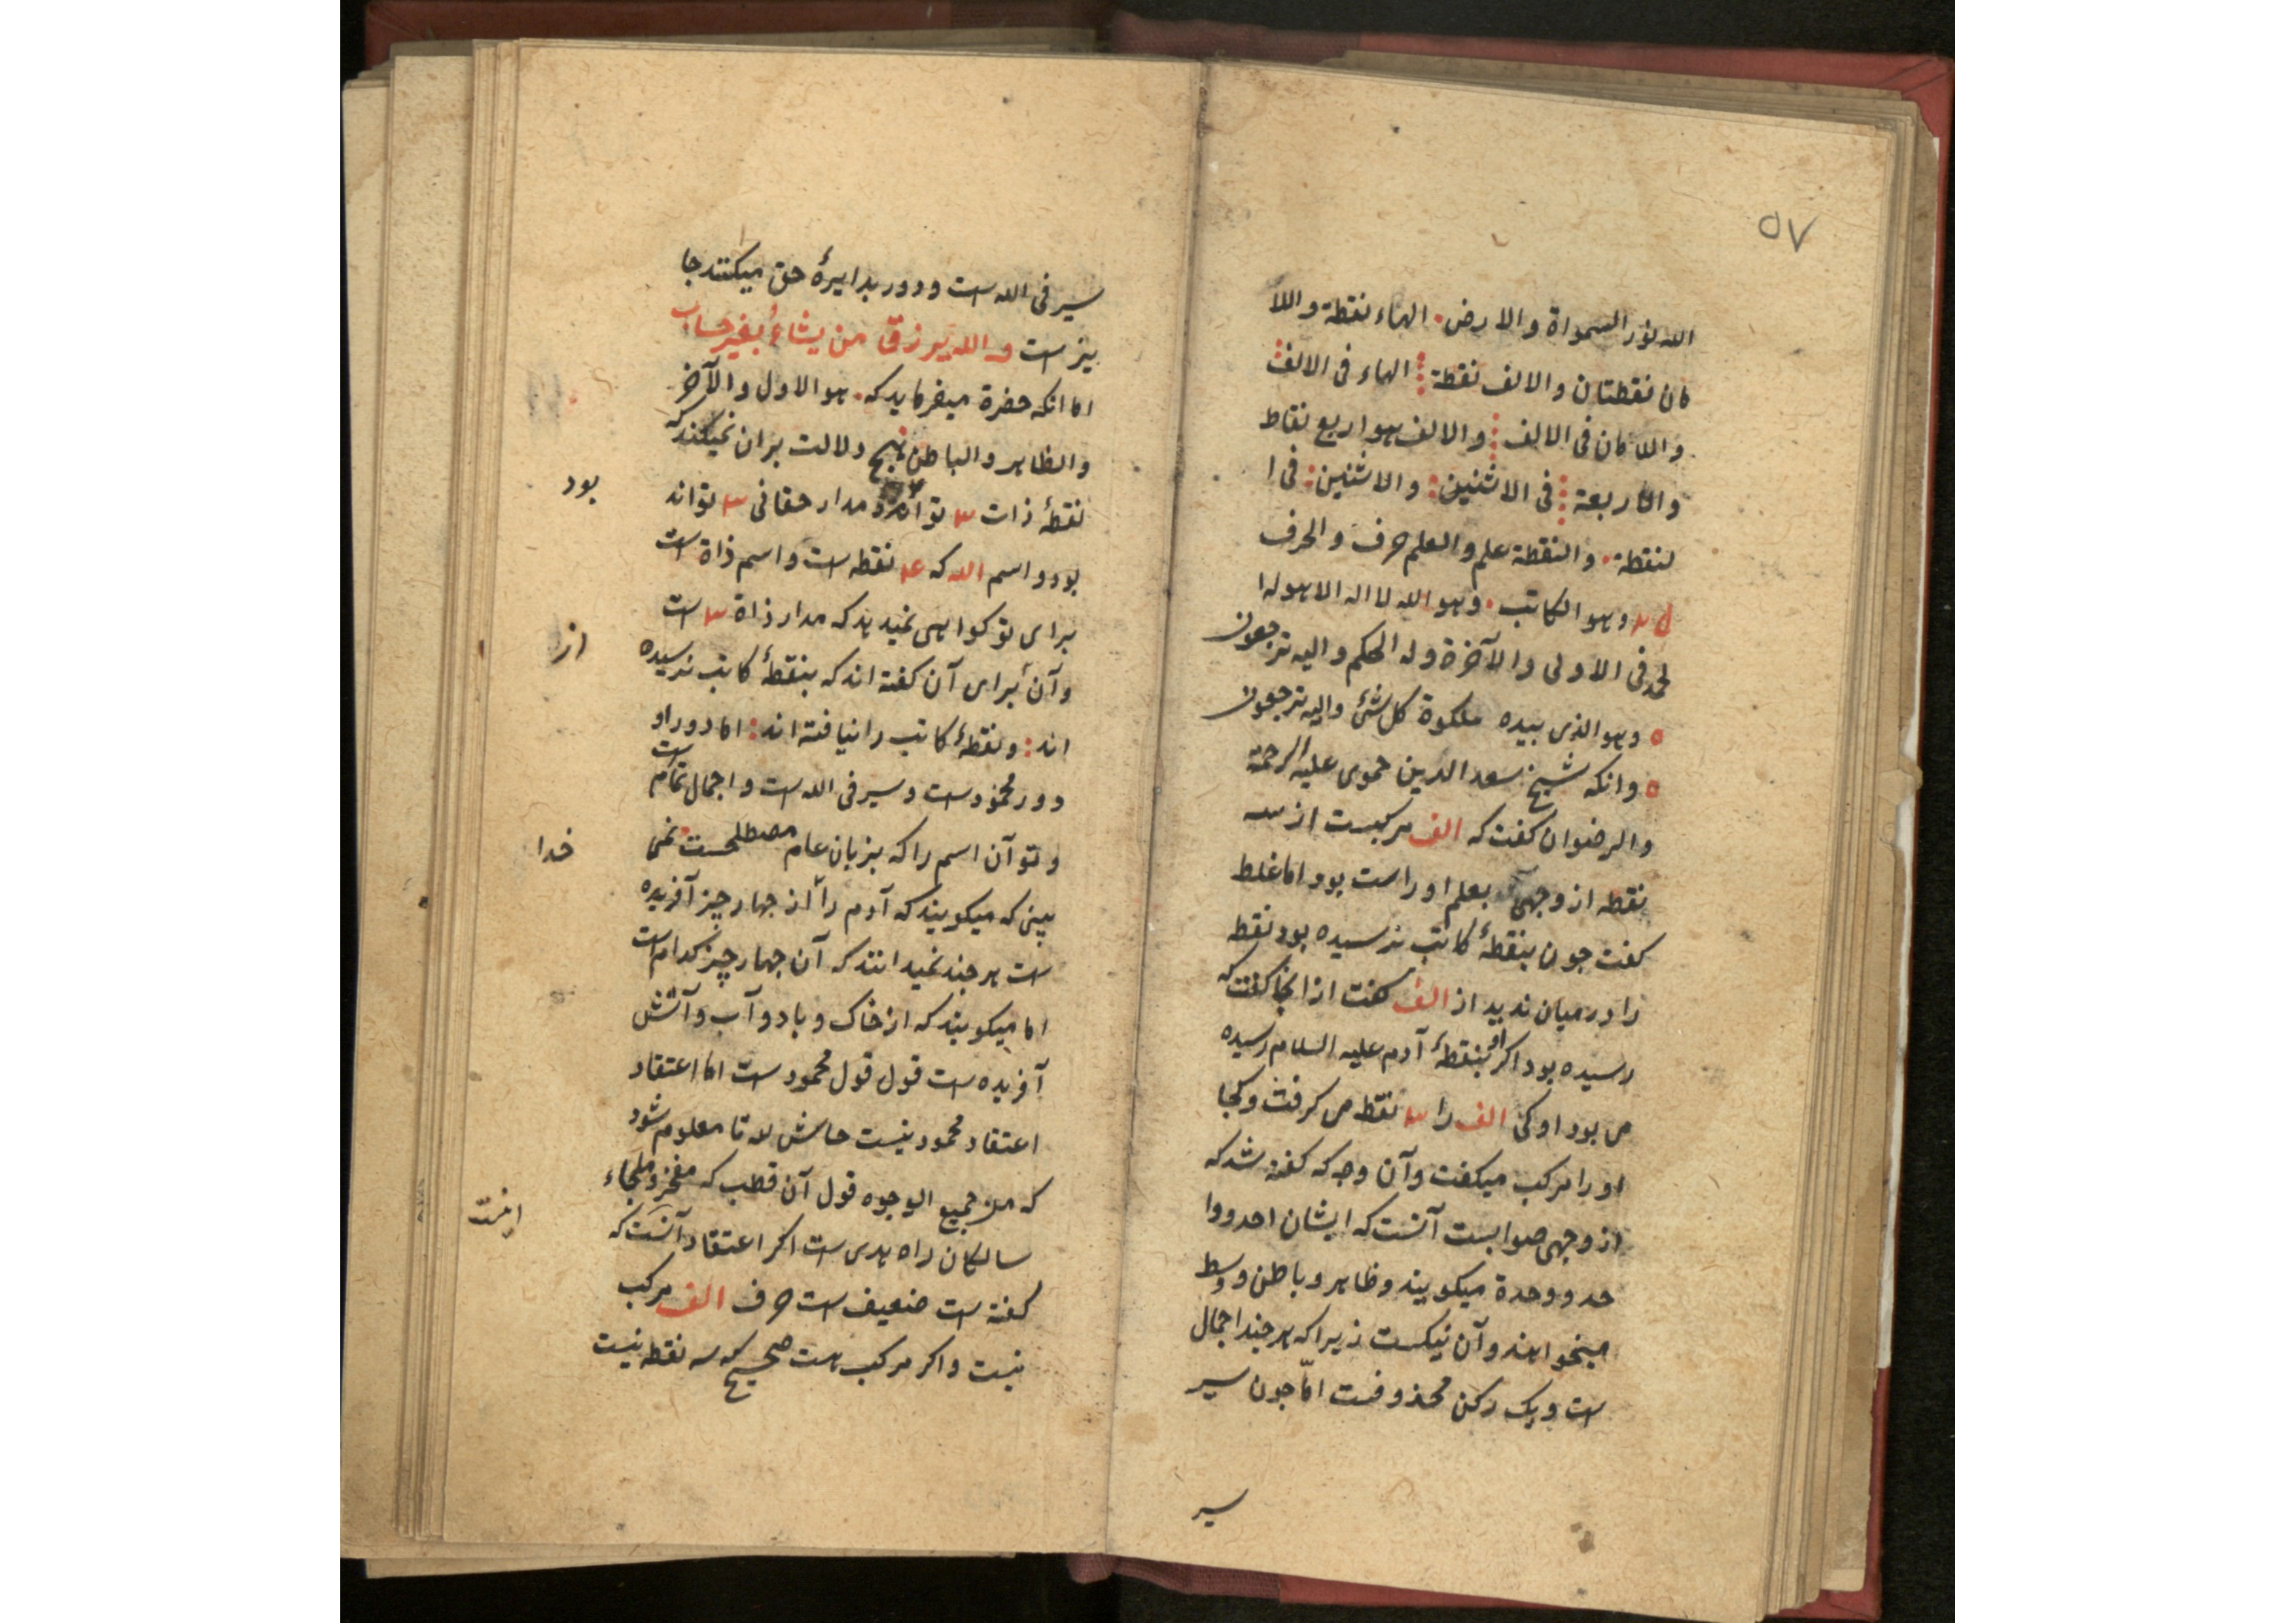 ۵۷
الله نور السمواة والارض. الهاء نقطة واللا
مان نقطتان والالف نقطة ⁞ الهاء فی الالف
واللامان فی الالف ⁞ والالف هو اربع نقاط
والاربعة ⁞ فی الاثنین : والاثنین : فی ا
لنقطة. والنقطة علم والعلم حرف والحرف
وهو الکاتب. وهو الله لا اله الا هو له ا
لحمد فی الاولی والآخرة وله الحکم والیه ترجعون
ه وهو الذی بیده ملکوة کل شئ والیه ترجعون
ه وانکه شیخ سعد الدین حموی علیه الرحمة
والرضوان کفت که الف مرکبست از سه
نقطه از وجهی بعلم او راست بود اما غلط
کفت جون بنقطهٔ کاتب نرسیده بود نقطه
را در میان ندید از الف کفت از انجا کفت که
رسیده بود اکر او بنقطهٔ آدم علیه السلام رسیده
می بود او کی الف را ۳ نقطه می کرفت وکجا
او را مرکب میکفت وآن وجه که کفته شد که
از وجهی صوابست آنست که ایشان احد ووا
حد و وحدة میکویند وظاهر وباطن ووسط
میخواهند وآن نیکست زیرا که هر جند اجمال
است ویک رکن محذوفست امّا جون سیر
سیر
سیر فی الله است ودور بدایرهٔ حق میکنند جا
یز است والله یرزق من یشاءُ بغیر حساب
اما انکه حضرة میفرماید که. هو الاول والآخر
والظاهر والباطن هیج دلالت بران نمیکند که
نقطهٔ ذات ۳ تواند مدار حقانی ۳ تواند
بود
بود و اسم الله که ۴ نقطه است واسم ذاة است
برای تو کواهی نمیدهد که مدار ذاة ۳ است
وآن برای آن کفته اند که بنقطهٔ کاتب نرسیده
از
اند : ونقطهٔ کاتب را نیافته اند : اما دور او
دور محمودست وسیر فی الله است واجمال تمام است
وتو آن اسم را که بزبان عام مصطلحست نمی
خدا
بینی که میکویند که آدم را از جهار چیز آفریده
است هر جند نمیدانند که آن جهار چیز کدام است
اما میکویند که از خاک وباد وآب وآتش
آفریده است قول قول محمود است اما اعتقاد
اعتقاد محمود نیست حاش لله تا معلوم شود
که من جمیع الوجوه قول آن قطب که مفخر وملجاء
سالکان راه هدی است اکر اعتقاد آنست که
کفته است ضعیف است حرف الف مرکب
نیست واکر مرکب است صحیح که سه نقطه نیست